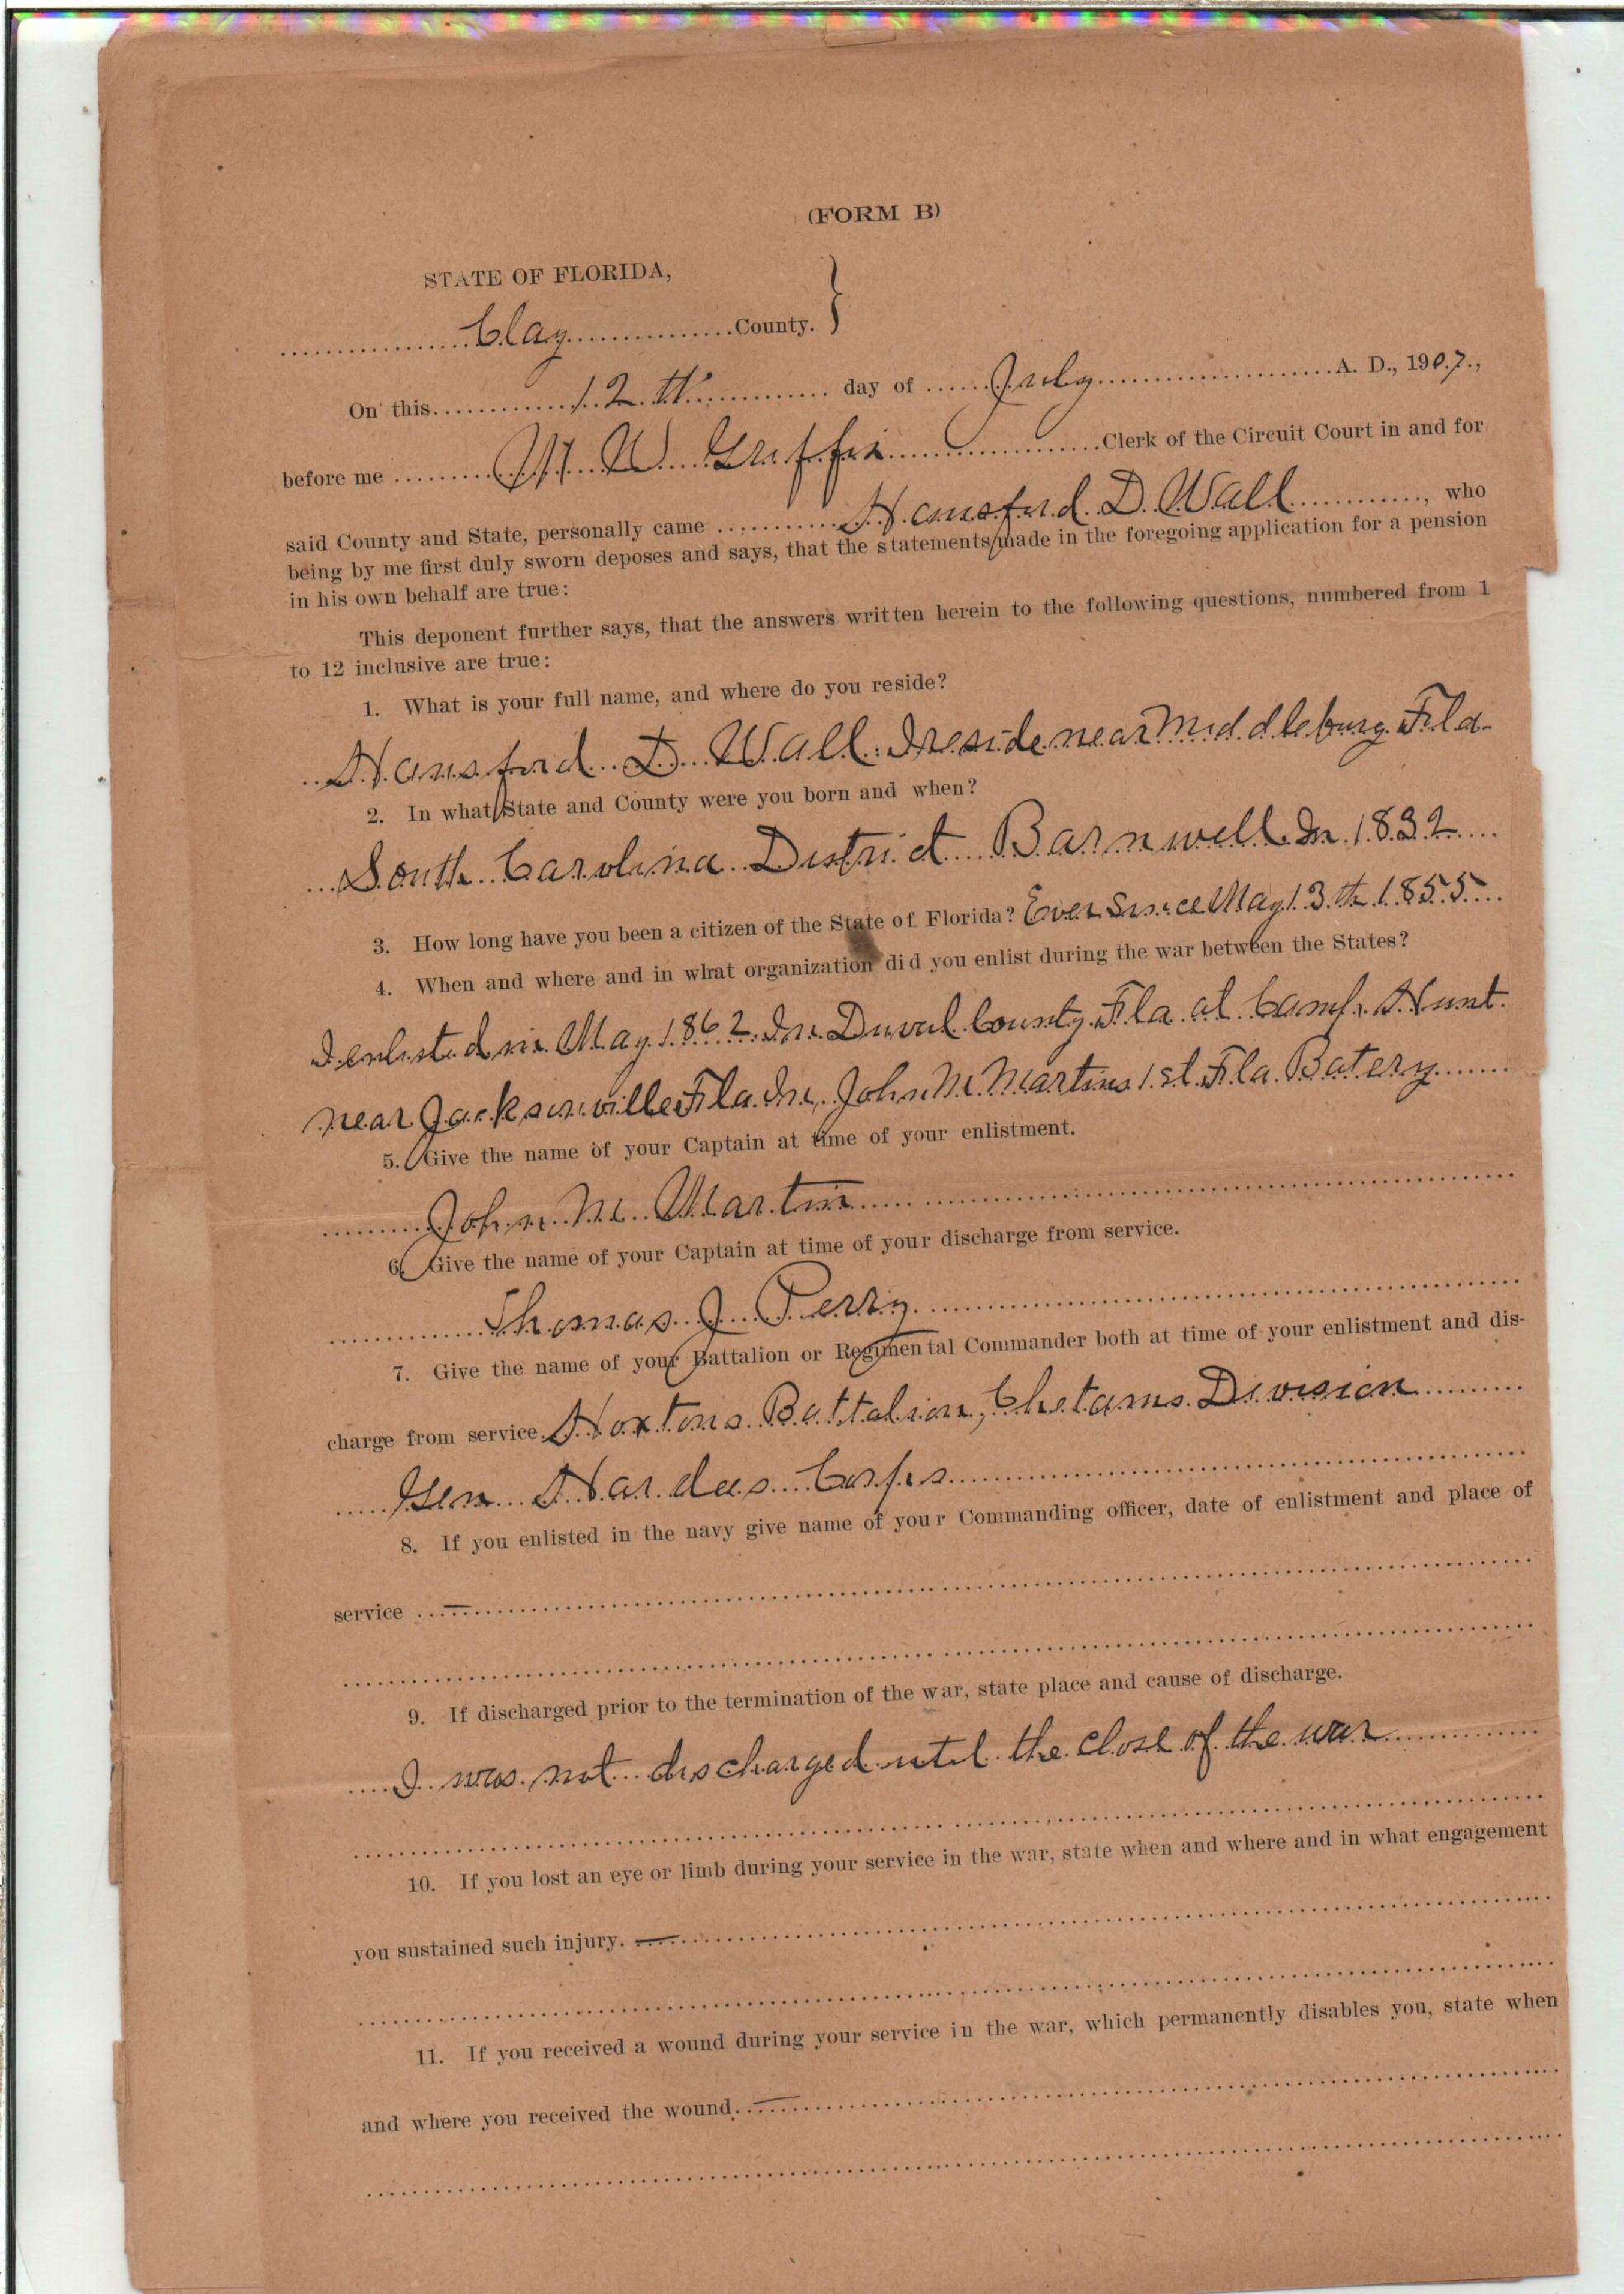 (FORM B)
STATE OF FLORIDA,
Clay County. }
On this 12th day of July A. D., 1907,
before me W. W. Griffin Clerk of the Circuit Court in and for
said County and State, personally came Hansford D. Wall, who
being by me first duly sworn deposes and says, that the statements made in the foregoing application for a pension
in his own behalf are true:
This deponent further says, that the answers written herein to the following questions, numbered from 1
to 12 inclusive are true:
1. What is your full name, and where do you reside?
Hansford D. Wall. I reside near Middleburg Fla.
2. In what State and County were you born and when?
South Carolina District Barnwell In 1832
3. How long have you been a citizen of the State of Florida? Ever Since May 13th 1855
4. When and where and in what organization did you enlist during the war between the States?
I enlisted in May 1862 In Duval County Fla at Camp Hunt
near Jacksonville Fla In John M Martins 1st Fla Batery
5. Give the name of your Captain at time of your enlistment.
John M. Martin
6. Give the name of your Captain at time of your discharge from service.
Thomas J Perry
7. Give the name of your Battalion or Regimental Commander both at time of your enlistment and dis-
charge from service. Hoxtons Battalion, Chetams Division
Gen Hardees Corps
8. If you enlisted in the navy give name of your Commanding officer, date of enlistment and place of
service —
9. If discharged prior to the termination of the war, state place and cause of discharge.
I was not discharged until the close of the war
10. If you lost an eye or limb during your service in the war, state when and where and in what engagement
you sustained such injury. —
11. If you received a wound during your service in the war, which permanently disables you, state when
and where you received the wound. —